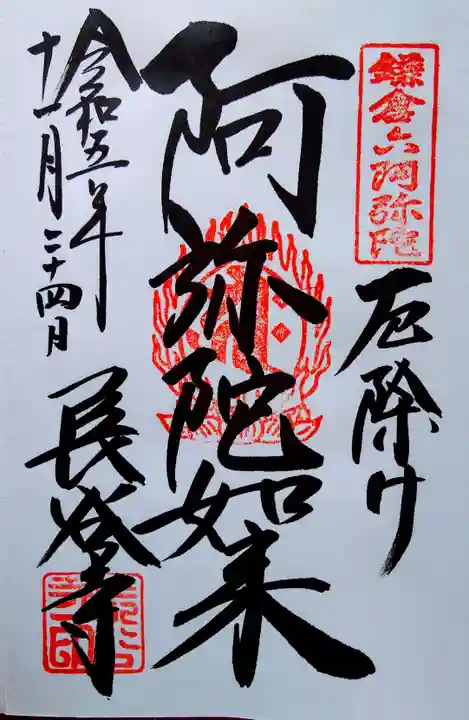 鎌倉六阿弥陀
厄除け
阿弥陀如来
令和五年
十一月二十四日
長登寺